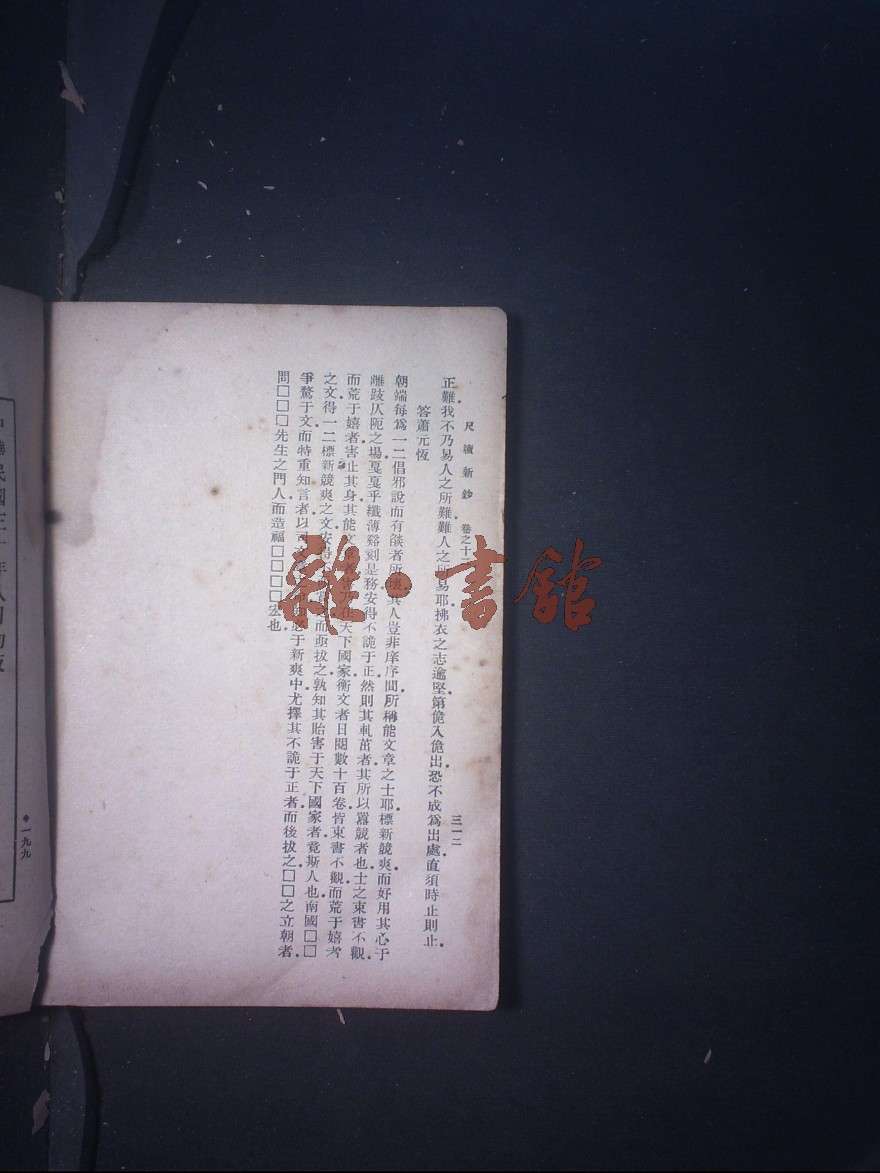 尺牘新鈔 卷之十二 三一二
正難我不乃易人之所難難人之所易耶拂衣之志逾堅第佹入佹出恐不成為出處直須時止則止
答蕭元恆
朝端每為一二倡邪說而有燄者所壞其人豈非庠序間所稱能文章之士耶標新競爽而好用其心于
雌跂仄阨之場戛戛乎纖薄谿刻是務安得不詭于正然則其軋茁者其所以囂競者也士之束書不觀
而荒于嬉者害止其身其能文 害乃在天下國家衡文者日閱數十百卷皆束書不觀而荒于嬉者
之文得一二標新競爽之文安得不 而亟拔之孰知其貽害于天下國家者竟斯人也南國□□
爭鶩于文而特重知言者以司 必于新爽中尤擇其不詭于正者而後拔之□□之立朝者
問□□□先生之門人而造福□□□□宏也
雜·書館
一九九